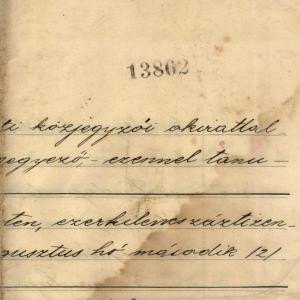 13862
ti közjegyzói okirattal
egyező,- ezennel tanu-
ten, ezerkilencszáztizen-
gusztus hó második /2/